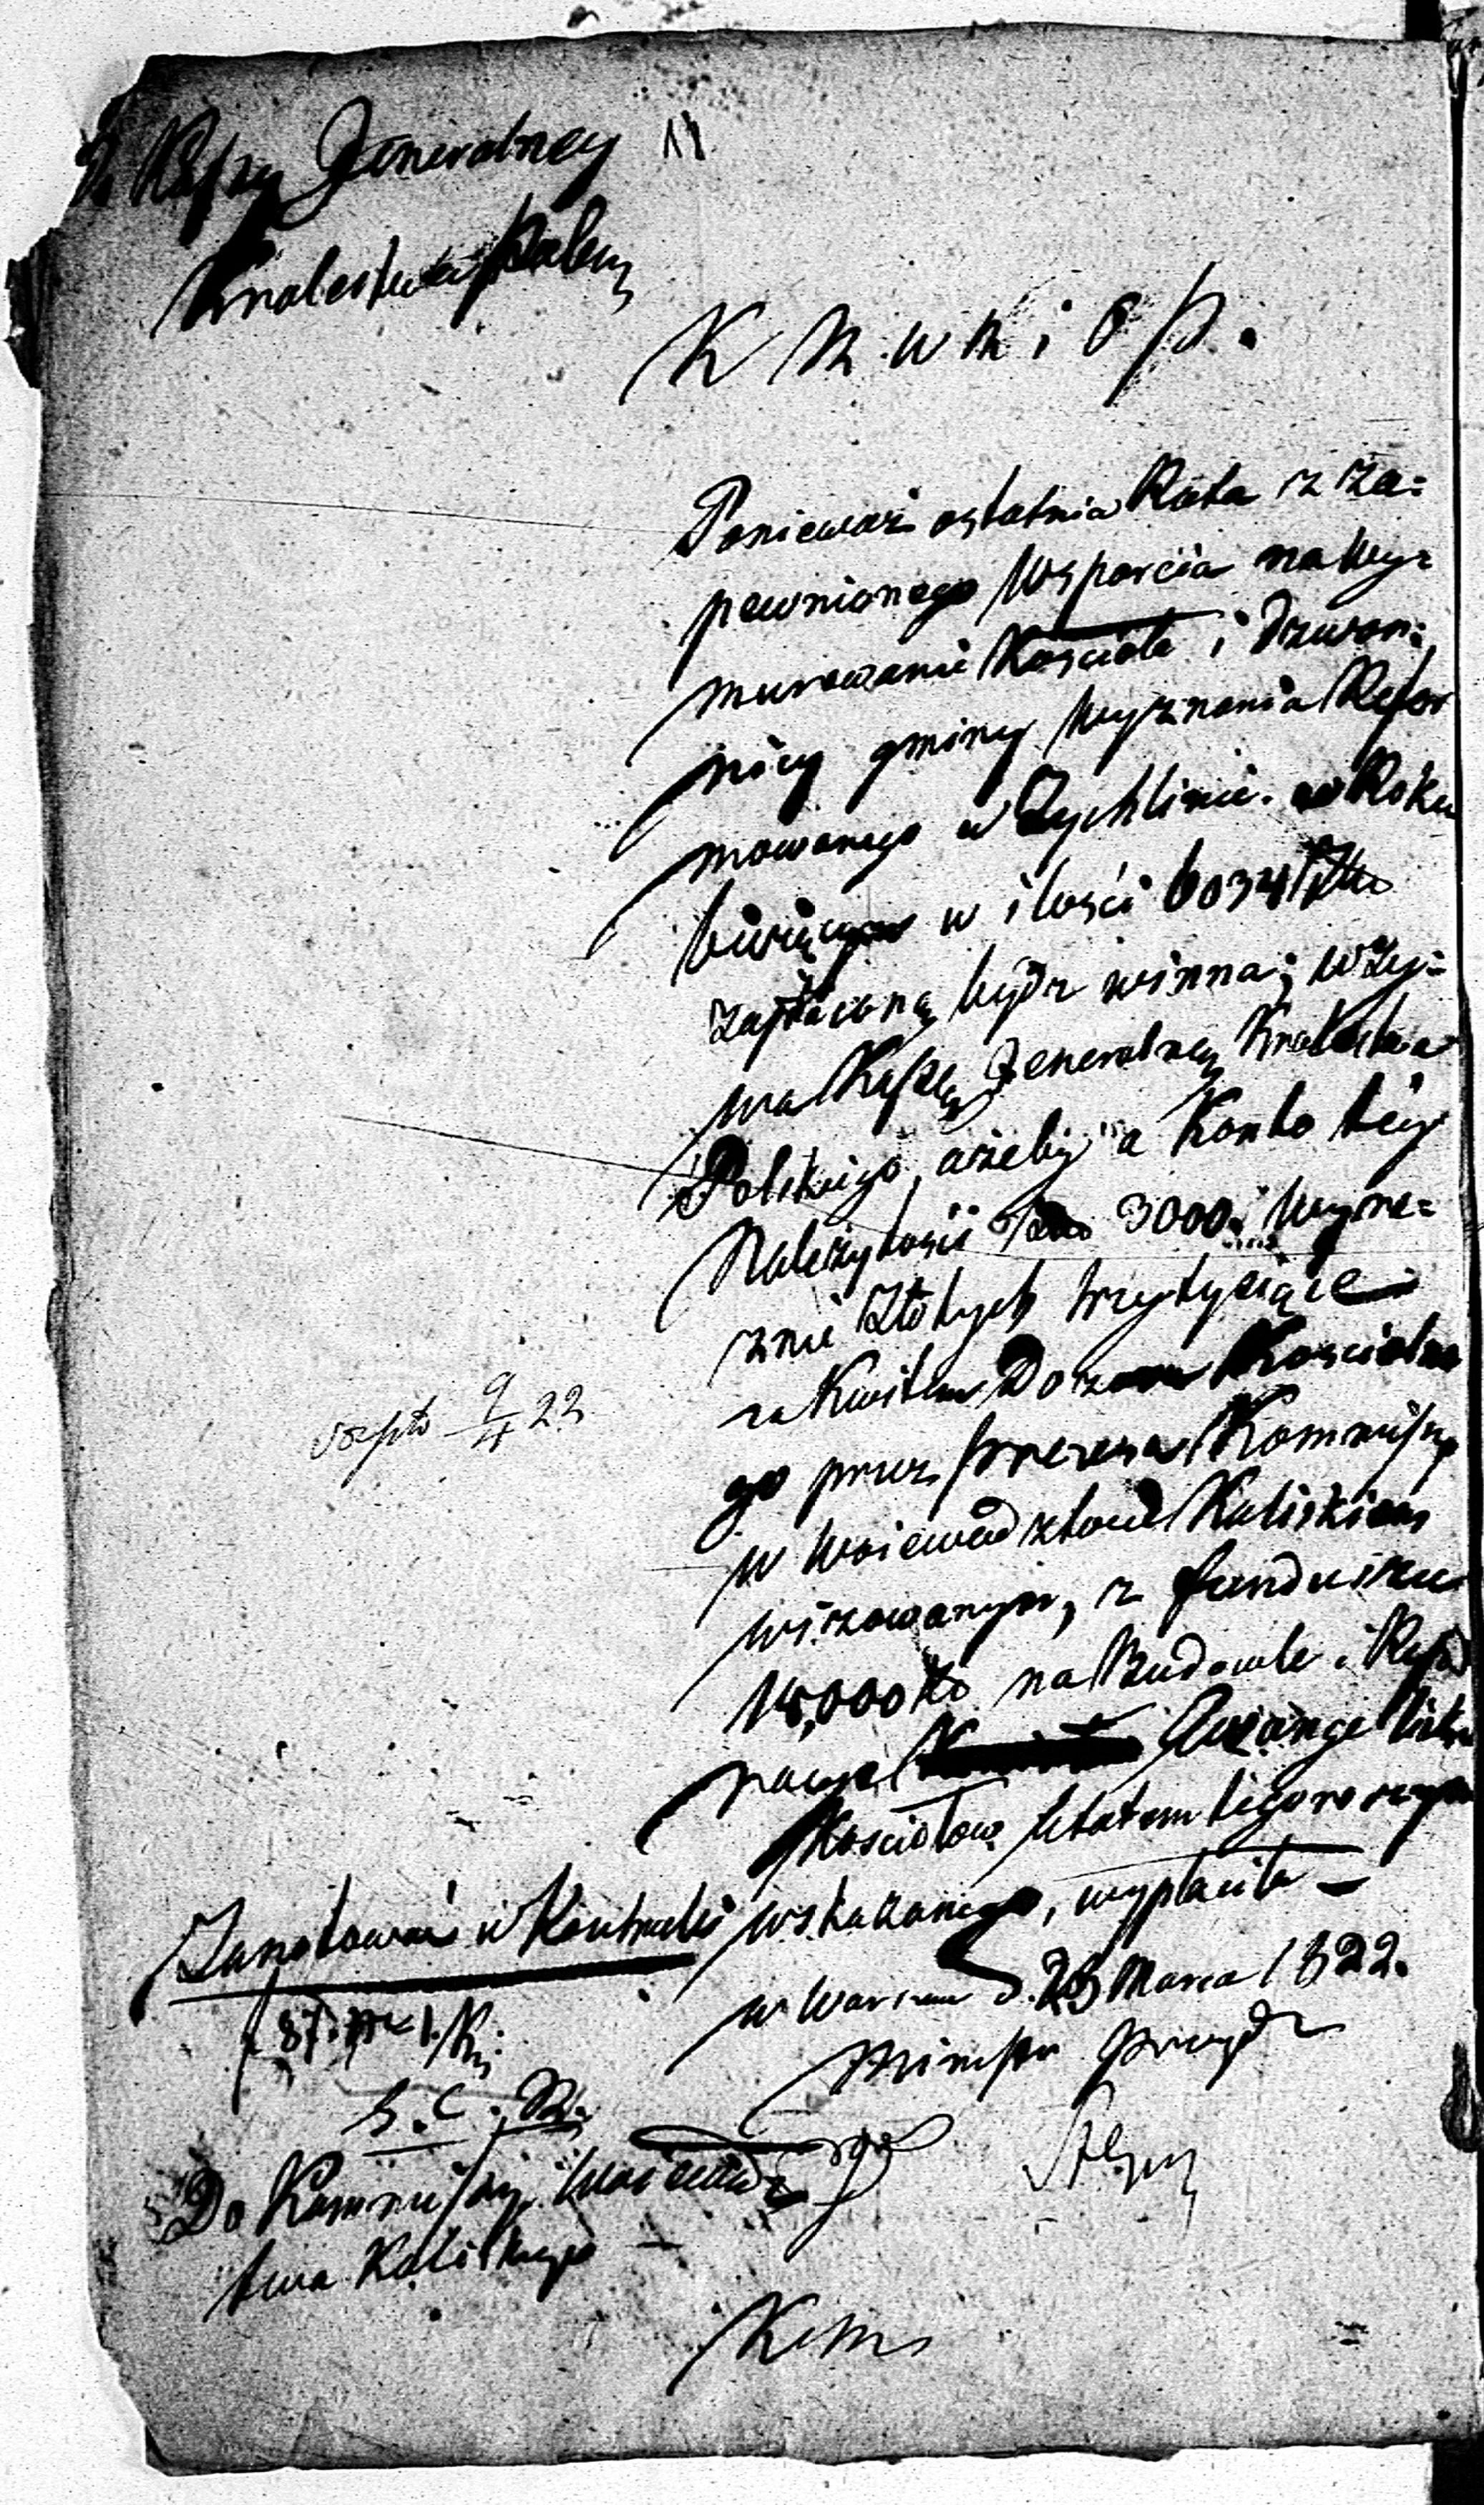 Do Kassy Jeneralney
Królestwa Polsk
11
K R. W R i O P.
Ponieważ ostatnia Rata z za=
pewnionego Wsparcia na wy=
murowanie Kościoła i Dzwon=
nicy gminy Wyznania Refor
mowanego w Zychlinie. w Roku
bieżącym w ilości 6034
zapłaconą bydź winna; wzy=
wa Kassę Jeneralną Królestwa
Polskiego, ażeby a Konto tey
Należytości 3000. wyra=
znie Złotych trzytysiące
za Kwitem Dozoru Kościelne
go przez Prezesa Kommissyi
w Woiewództwie Kaliskiem
wizowanym, z funduszu
na Budowle i Repa
racye Ewangelick
Kościołow Etatem tegorocznym
wskazanego, wypłaciła —
w Warszawie d. 28 Marca 1822.
Minister Prezyd
9/4 22
Zanotować w Kontrolli
Do Kommissyi Woiewódz
twa Kaliskiego